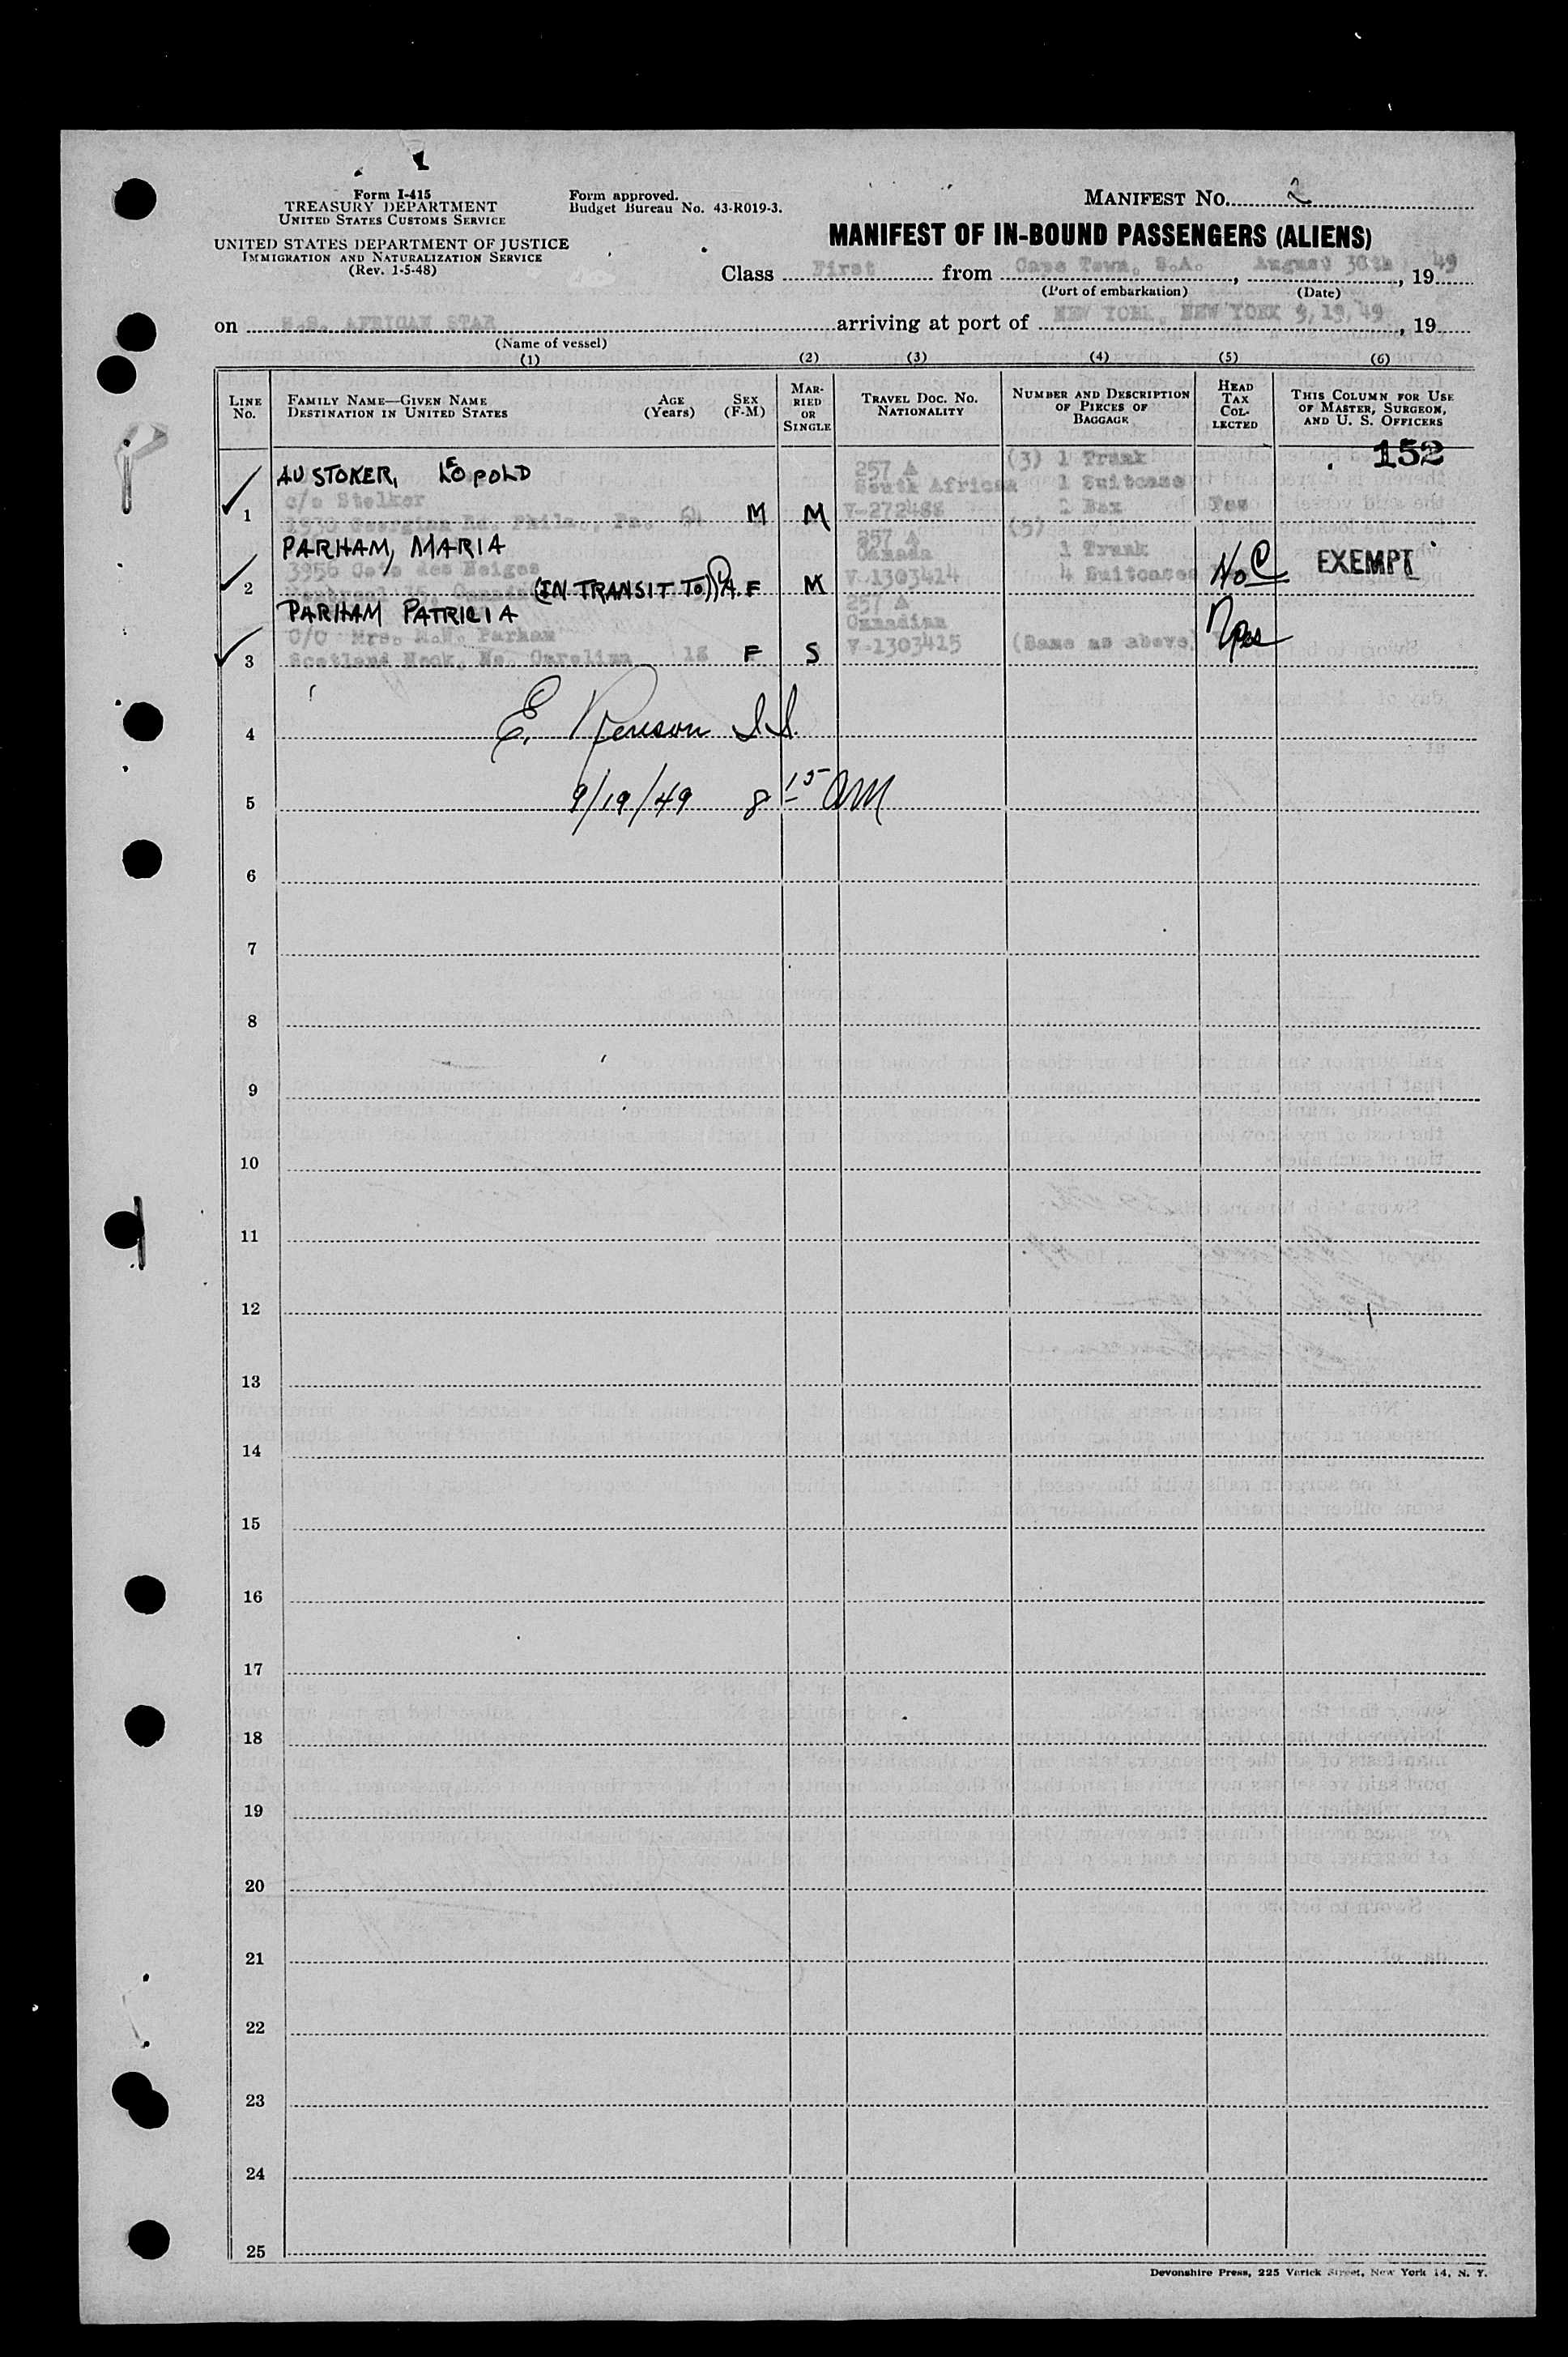 Form I-415
TREASURY DEPARTMENT
UNITED STATES CUSTOMS SERVICE
UNITED STATES DEPARTMENT OF JUSTICE
IMMIGRATION AND NATURALIZATION SERVICE
(Rev. 1-5-48)
Form approved.
Budget Bureau No. 43-R019-3.
MANIFEST NO. 2
MANIFEST OF IN-BOUND PASSENGERS (ALIENS)
Class First from Cape Town, S.A., August 30th, 1949
(Port of embarkation) (Date)
on S.S. AFRICAN STAR arriving at port of NEW YORK, NEW YORK 9,19,49, 19
(Name of vessel)
(1) (2) (3) (4) (5) (6)
LINE NO.
FAMILY NAME—GIVEN NAME
DESTINATION IN UNITED STATES
AGE (Years)
SEX (F-M)
MARRIED OR SINGLE
TRAVEL DOC. NO.
NATIONALITY
NUMBER AND DESCRIPTION OF PIECES OF BAGGAGE
HEAD TAX COLLECTED
THIS COLUMN FOR USE OF MASTER, SURGEON, AND U. S. OFFICERS
152
AUSTOKER, LEOPOLD 257 A (3) 1 Trunk
c/o Stelker South African 1 Suitcase
1 1930 Georgian Rd. Phila., Pa. 64 M M V-272488 2 Box Yes
PARHAM, MARIA 257 A (5)
3956 Cote des Neiges Canada 1 Trunk
2 Montreal (IN TRANSIT TO) F M V-1303414 4 Suitcases No EXEMPT
PARHAM PATRICIA 257 A
C/O Mrs. Parham Canadian
3 Scotland Neck, No. Carolina 18 F S V-1303415 (Same as above) Yes
4 E.
5 9/19/49 8 15 AM
6
7
8
9
10
11
12
13
14
15
16
17
18
19
20
21
22
23
24
25
Devonshire Press, 225 Varick Street, New York 14, N. Y.